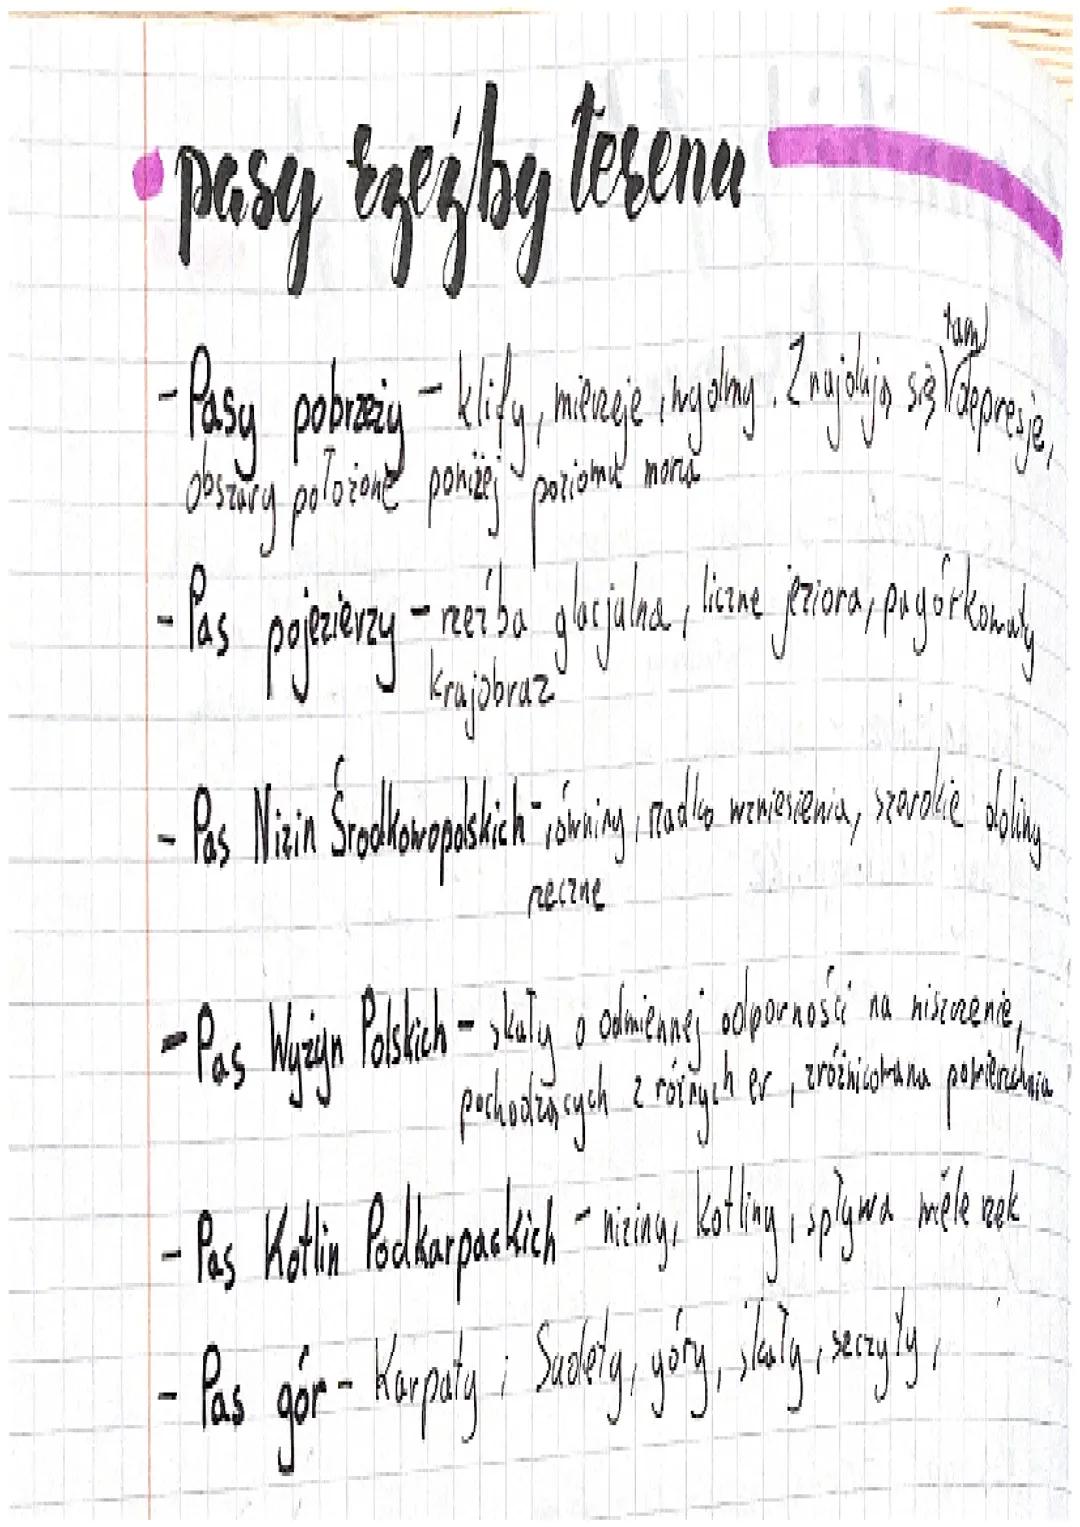 • pasy rzeźby terenu
tam
- Pasy pobrzeży - klify, mierzeje, wydmy. Znajdują się V depresje,
obszary położone poniżej poziomu morza
- Pas pojezierzy - rzeźba glacjalna, liczne jeziora, pagórkowaty
krajobraz
- Pas Nizin Środkowopolskich - równiny, rzadko wzniesienia, szerokie doliny
rzeczne
- Pas Wyżyn Polskich - skały o odmiennej odporności na niszczenie,
pochodzących z różnych er, zróżnicowana powierzchnia
- Pas Kotlin Podkarpackich - niziny, kotliny, spływa wiele rzek
- Pas gór - Karpaty i Sudety, góry, skały, szczyty,